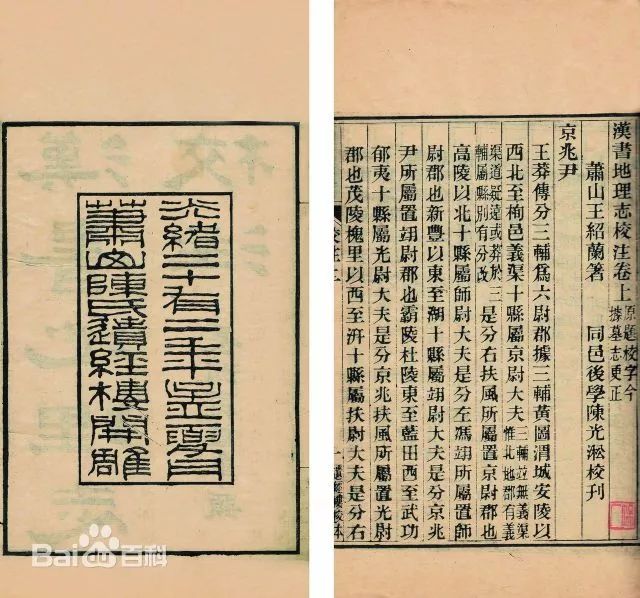 漢書地理志校注卷上
原題校字今
據墓志更正
蕭山王紹蘭著 同邑後學陳光淞校刊
京兆尹
王莽傳分三輔爲六尉郡據三輔黃圖渭城安陵以
西北至栒邑義渠十縣屬京尉大夫
三輔竝無義渠
惟北地郡有義
渠道疑遠或莽於三
輔屬縣別有分改
是分右扶風所屬置京尉郡也
高陵以北十縣屬師尉大夫是分左馮翊所屬置師
尉郡也新豐以東至湖十縣屬翊尉大夫是分京兆
尹所屬置翊尉郡也霸陵杜陵東至藍田西至武功
郁夷十縣屬光尉大夫是分京兆扶風所屬置光尉
郡也茂陵槐里以西至汧十縣屬扶尉大夫是分右
光緒三十有二年孟夏月
蕭山陳氏遺經樓開雕
Bai百科